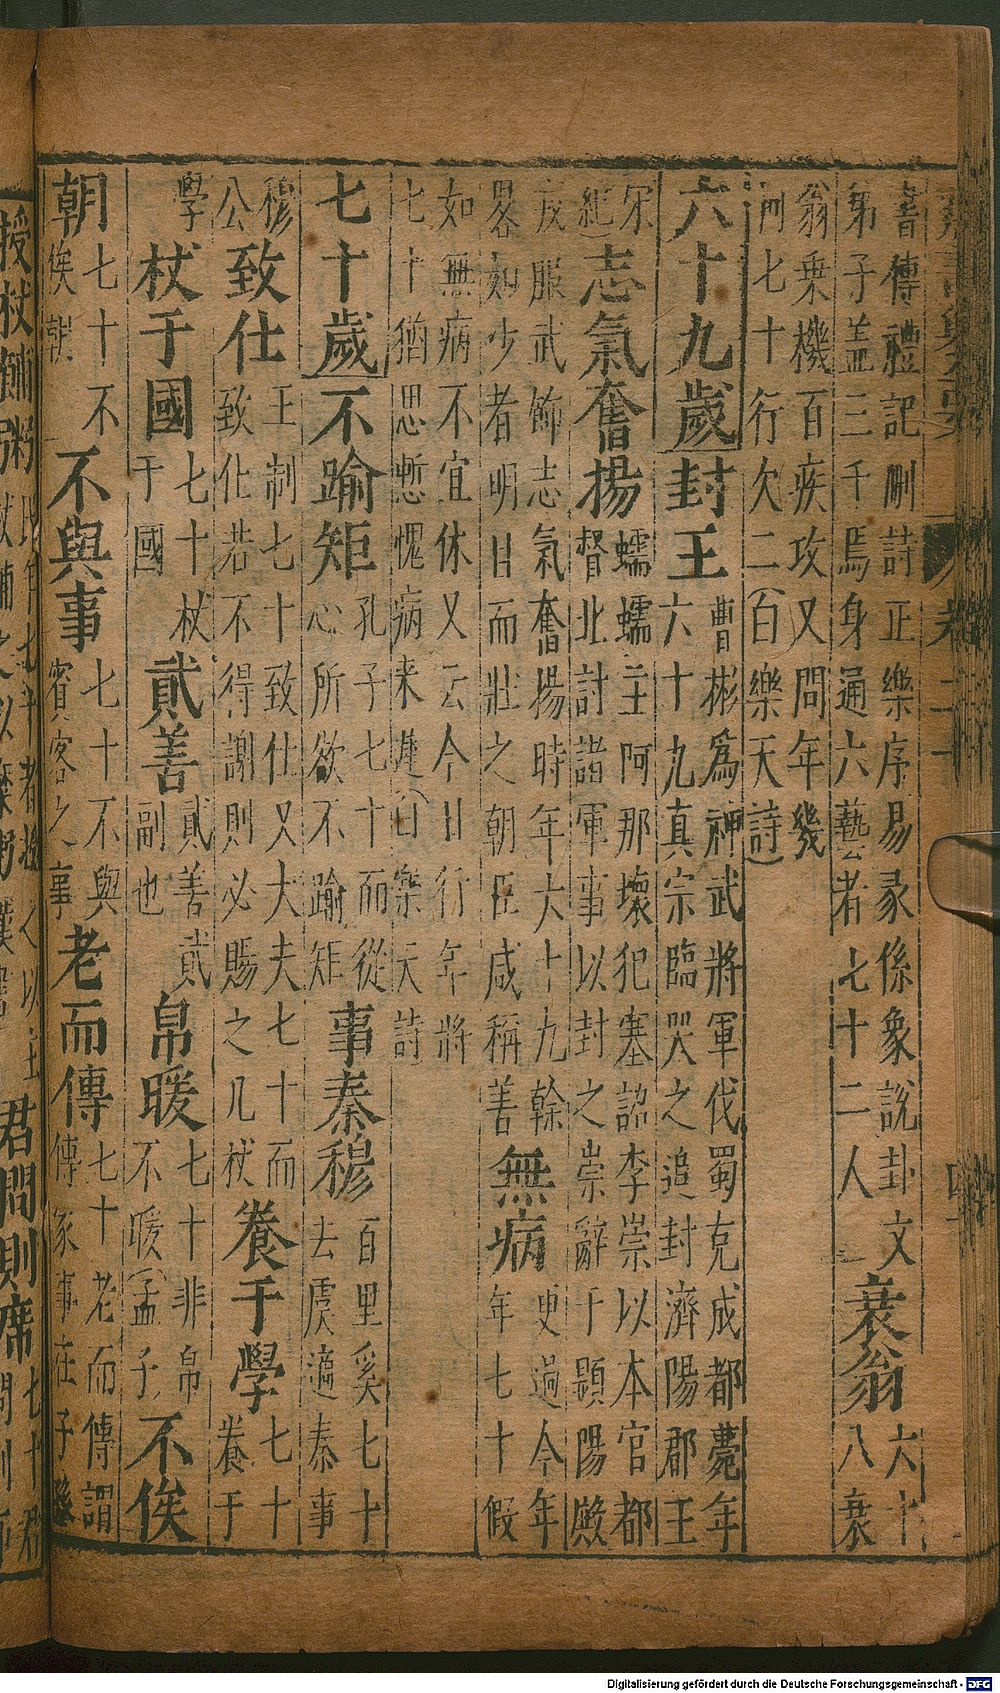 書傳禮記刪詩正樂序易彖係象說卦文
弟子益三千焉身通六藝者七十二人
衰翁
六十
八衰
翁乗機百疾攻又問年幾
何七十行欠二（百樂天詩）
六十九歲
封王
曹彬為神武將軍伐蜀克成都薨年
六十九真宗臨哭之追封濟陽郡王
宋
紀）
志氣奮揚
蠕蠕主阿那壞犯塞詔李崇以本官都
督北討諸軍事以封之崇辭于顯陽殿
戎服武飾志氣奮揚時年六十九幹
畧如少者明日而壯之朝臣咸稱善
無病
史過今年
年七十假
如無病不宜休又云今日行年將
七十猶思慙愧病来遲（白樂天詩
七十歲
不踰矩
孔子七十而從
心所欲不踰矩
事秦穆
百里奚七十
去虞適秦事
穆
公
致仕
王制七十致仕又大夫七十而
致仕若不得謝則必賜之几杖
養于學
七十
養于
學
杖于國
七十杖
于國
貳善
貳善貳
副也
帛暖
七十非帛
不暖（孟子
不俟
朝
七十不
俟朝
不與事
七十不與
賓客之事
老而傳
七十老而傳謂
傳家事在子孫
君問則席
Digitalisierung gefördert durch die Deutsche Forschungsgemeinschaft - DFG